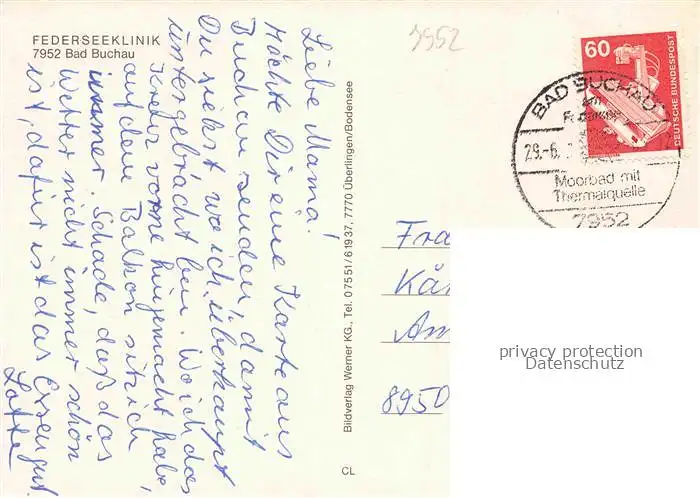 FEDERSEEKLINIK
7952 Bad Buchau
Liebe Mama!
Möchte Dir eine Karte aus
Buchau senden, damit
Du siehst wo ich überhaupt
untergebracht bin. Wo ich das
Kreuz vorne hingemacht habe,
auf dem Balkon sitz ich
immer. Schade, daß das
Wetter nicht immer schön
ist, dafür ist das Essen gut.
Lotte
Bildverlag Werner KG., Tel. 07551/61937, 7770 Überlingen/Bodensee
CL
7952
60
DEUTSCHE BUNDESPOST
BAD BUCHAU
29.-6.
Moorbad mit
Thermalquelle
7952
Fra
Kä
Am
8950
privacy protection
Datenschutz